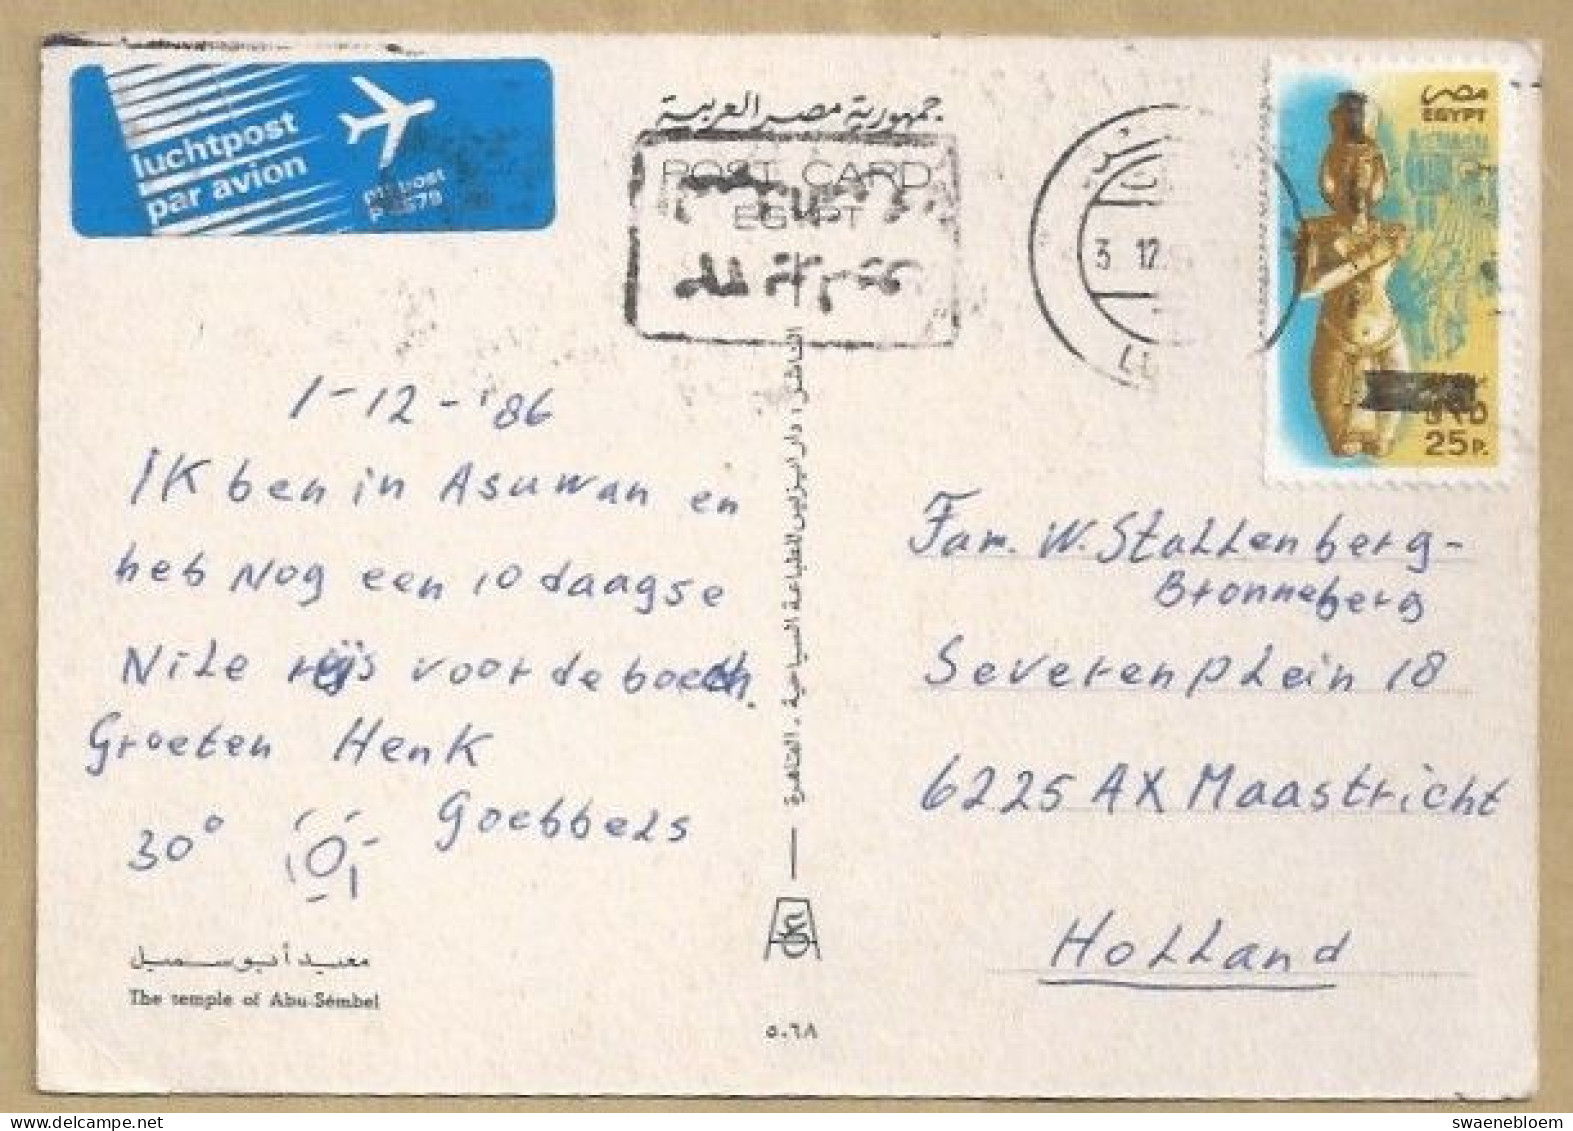 luchtpost
par avion
جمهورية مصر العربية
POST CARD
EGYPT
3 12
مصر
EGYPT
25 P.
1-12-'86
Ik ben in Asuwan en
heb nog een 10 daagse
Nile reijs voor de boech.
Groeten Henk
Goebbels
30°
معبد أبو سمبل
The temple of Abu-Sémbel
الناشر : دار ايزيس للطباعة السياحية . القاهرة
٥٠٦٨
Fam. W. Stallenberg-
Bronneberg
Severenplein 18
6225 AX Maastricht
Holland
swaenebloem